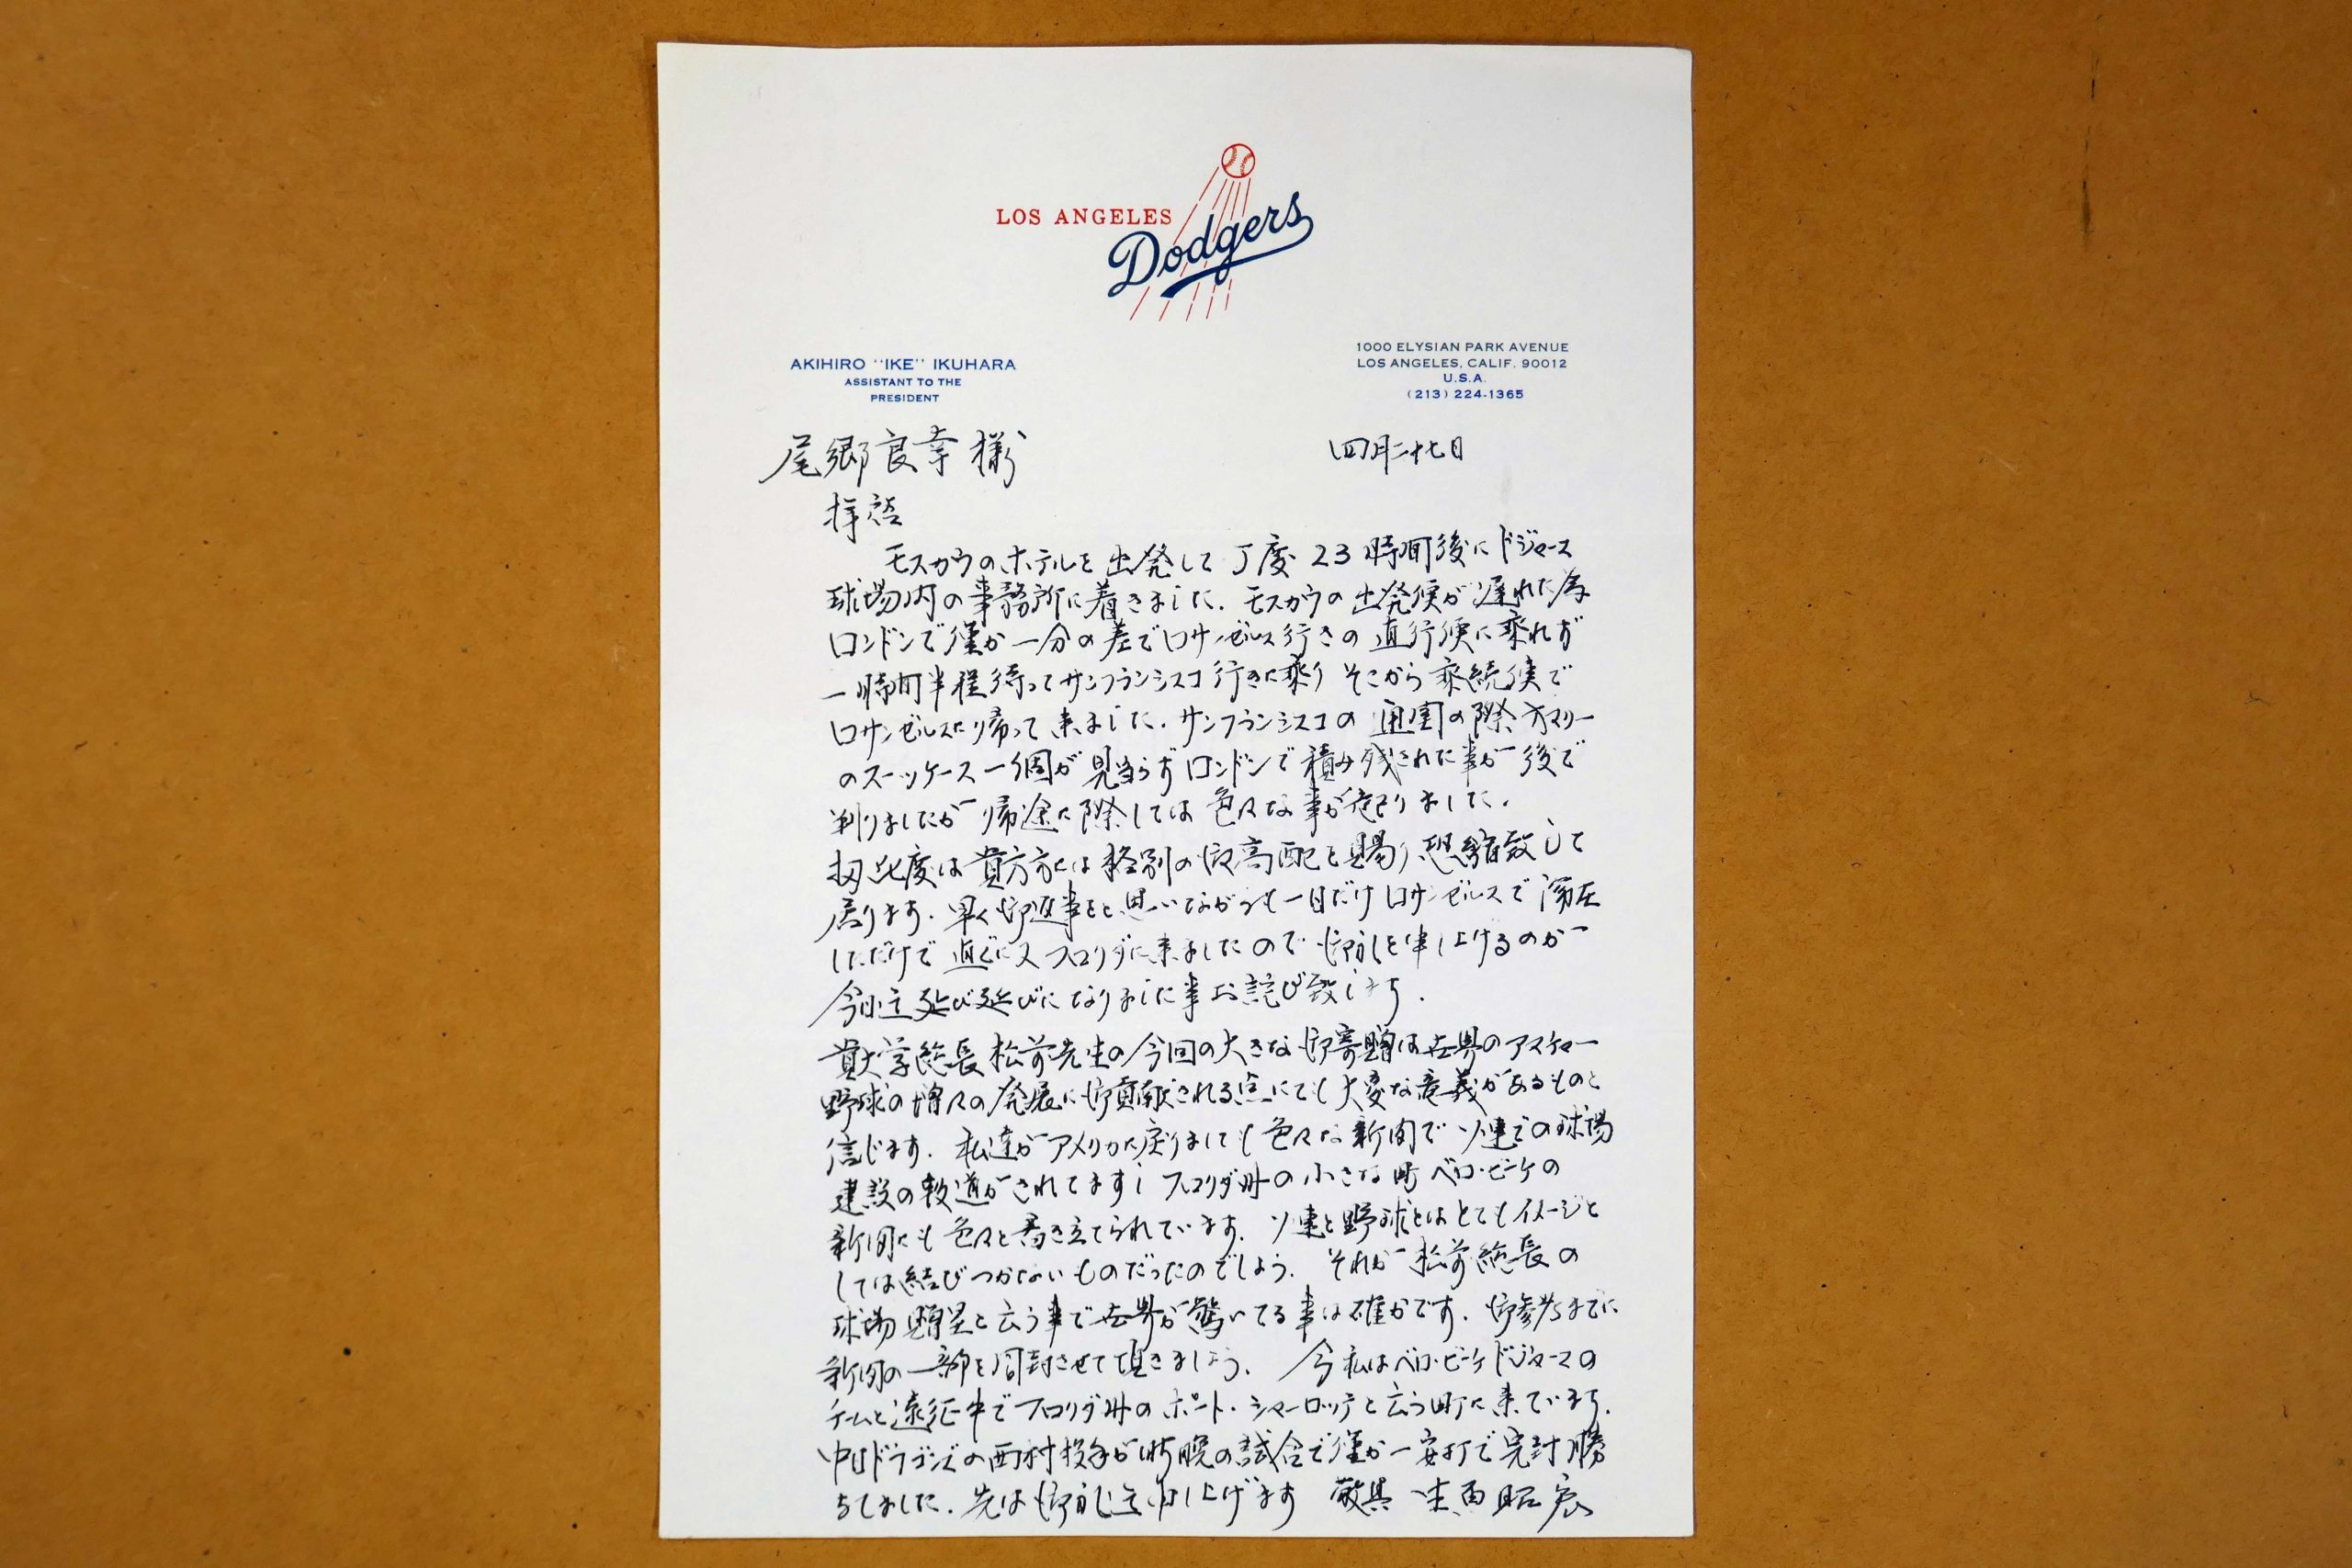 LOS ANGELES
Dodgers
AKIHIRO "IKE" IKUHARA
ASSISTANT TO THE
PRESIDENT
1000 ELYSIAN PARK AVENUE
LOS ANGELES, CALIF. 90012
U.S.A.
(213) 224-1365
尾郷良幸様
四月二十七日
拝啓
モスカウのホテルを出発して丁度23時間後にドジャース
球場内の事務所に着きました. モスカウの出発便が遅れた為
ロンドンで僅か一分の差でロサンゼルス行きの直行便に乗れず
一時間半程待ってサンフランシスコ行きに乗り そこから乗続便で
ロサンゼルスに帰って来ました. サンフランシスコの通関の際
のスーツケース一個が見当らずロンドンで積み残された事が後で
判りましたが帰途に際しては色々な事が起りました.
扨此度は貴方方には格別の御高配を賜り恐縮致して
居ります. 早く御返事をと思いながらも一日だけロサンゼルスで滞在
しただけで直ぐに又フロリダに来ましたので御礼を申し上げるのが
今日迄延び延びになりました事お詫び致します.
貴大学総長松前先生の今回の大きな御寄贈は世界のアマチャー
野球の増々の発展に御貢献される点にても大変な意義があるものと
信じます. 私達がアメリカに戻りましても色々な新聞でソ連での球場
建設の報道がされてますしフロリダ州の小さな町ベロ・ビーチの
新聞にも色々と書き立てられています. ソ連と野球とはとてもイメージと
しては結びつかないものだったのでしょう. それが松前総長の
球場贈呈と云う事で世界が驚いてる事は確かです. 御参考までに
新聞の一部を同封させて頂きましょう. 今私はベロ・ビーチドジャースの
チームと遠征中でフロリダ州のポート・シャーロッテと云う町に来ています.
中日ドラゴンズの西村投手が昨晩の試合で僅か一安打で完封勝
ちしました. 先は御礼迄申し上げます 敬具 生原昭宏